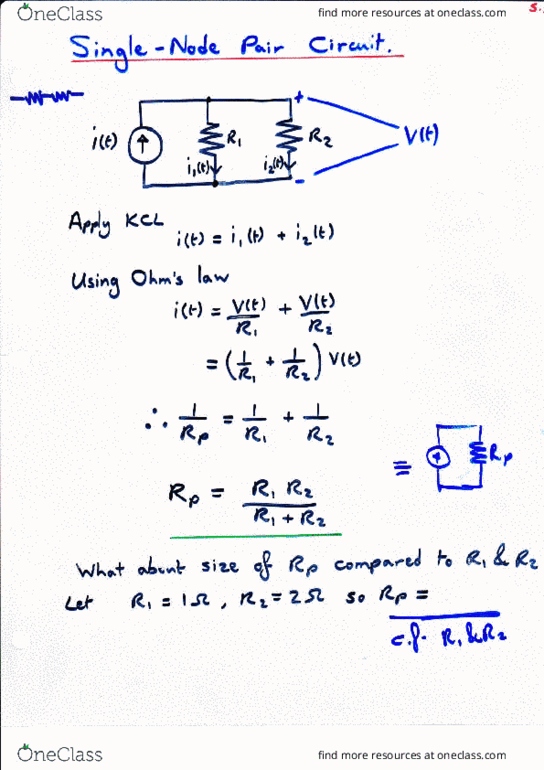 OneClass
find more resources at oneclass.com
S.
Single-Node Pair Circuit.
i(t)
R₁
i₁(t)
R₂
i₂(t)
+
-
V(t)
Apply KCL
i(t) = i₁(t) + i₂(t)
Using Ohm's law
i(t) = V(t)/R₁ + V(t)/R₂
= (1/R₁ + 1/R₂) V(t)
∴ 1/Rp = 1/R₁ + 1/R₂
≡
Rp
Rp = R₁ R₂ / R₁ + R₂
What about size of Rp compared to R₁ & R₂
Let R₁ = 1Ω, R₂ = 2Ω so Rp =
c.f. R₁ & R₂
OneClass
find more resources at oneclass.com